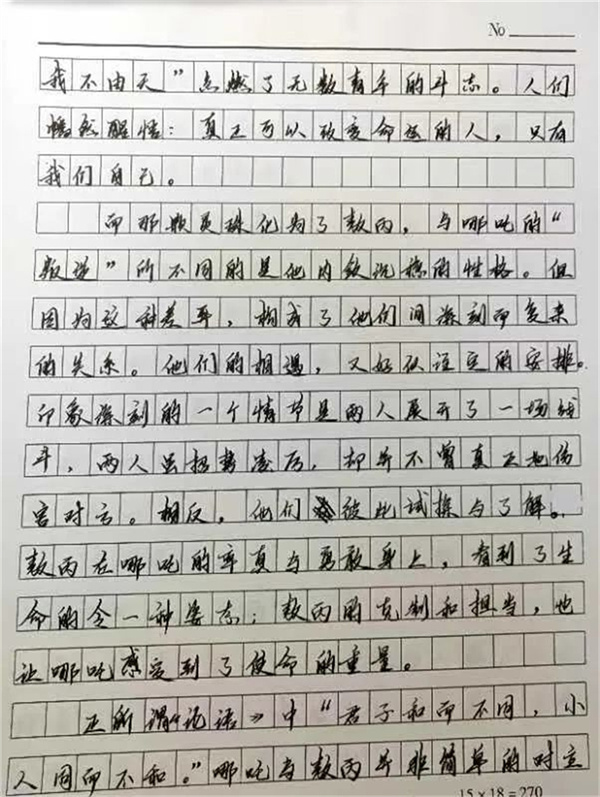 No
我不由天”点燃了无数青年的斗志。人们
幡然醒悟：真正可以改变命运的人，只有
我们自己。
而那颗灵珠化为了敖丙，与哪吒的“
叛逆”所不同的是他内敛沉稳的性格。但
因为这种差异，构成了他们间深刻而复杂
的关系。他们的相遇，又好似注定的安排。
印象深刻的一个情节是两人展开了一场战
斗，两人虽招势凌厉，却并不曾真正地伤
害对方。相反，他们彼此试探与了解。
敖丙在哪吒的率真与勇敢身上，看到了生
命的令一种姿态；敖丙的克制和担当，也
让哪吒感受到了使命的重量。
正所谓《论语》中“君子和而不同，小
人同而不和。”哪吒与敖丙并非简单的对立
15×18=270